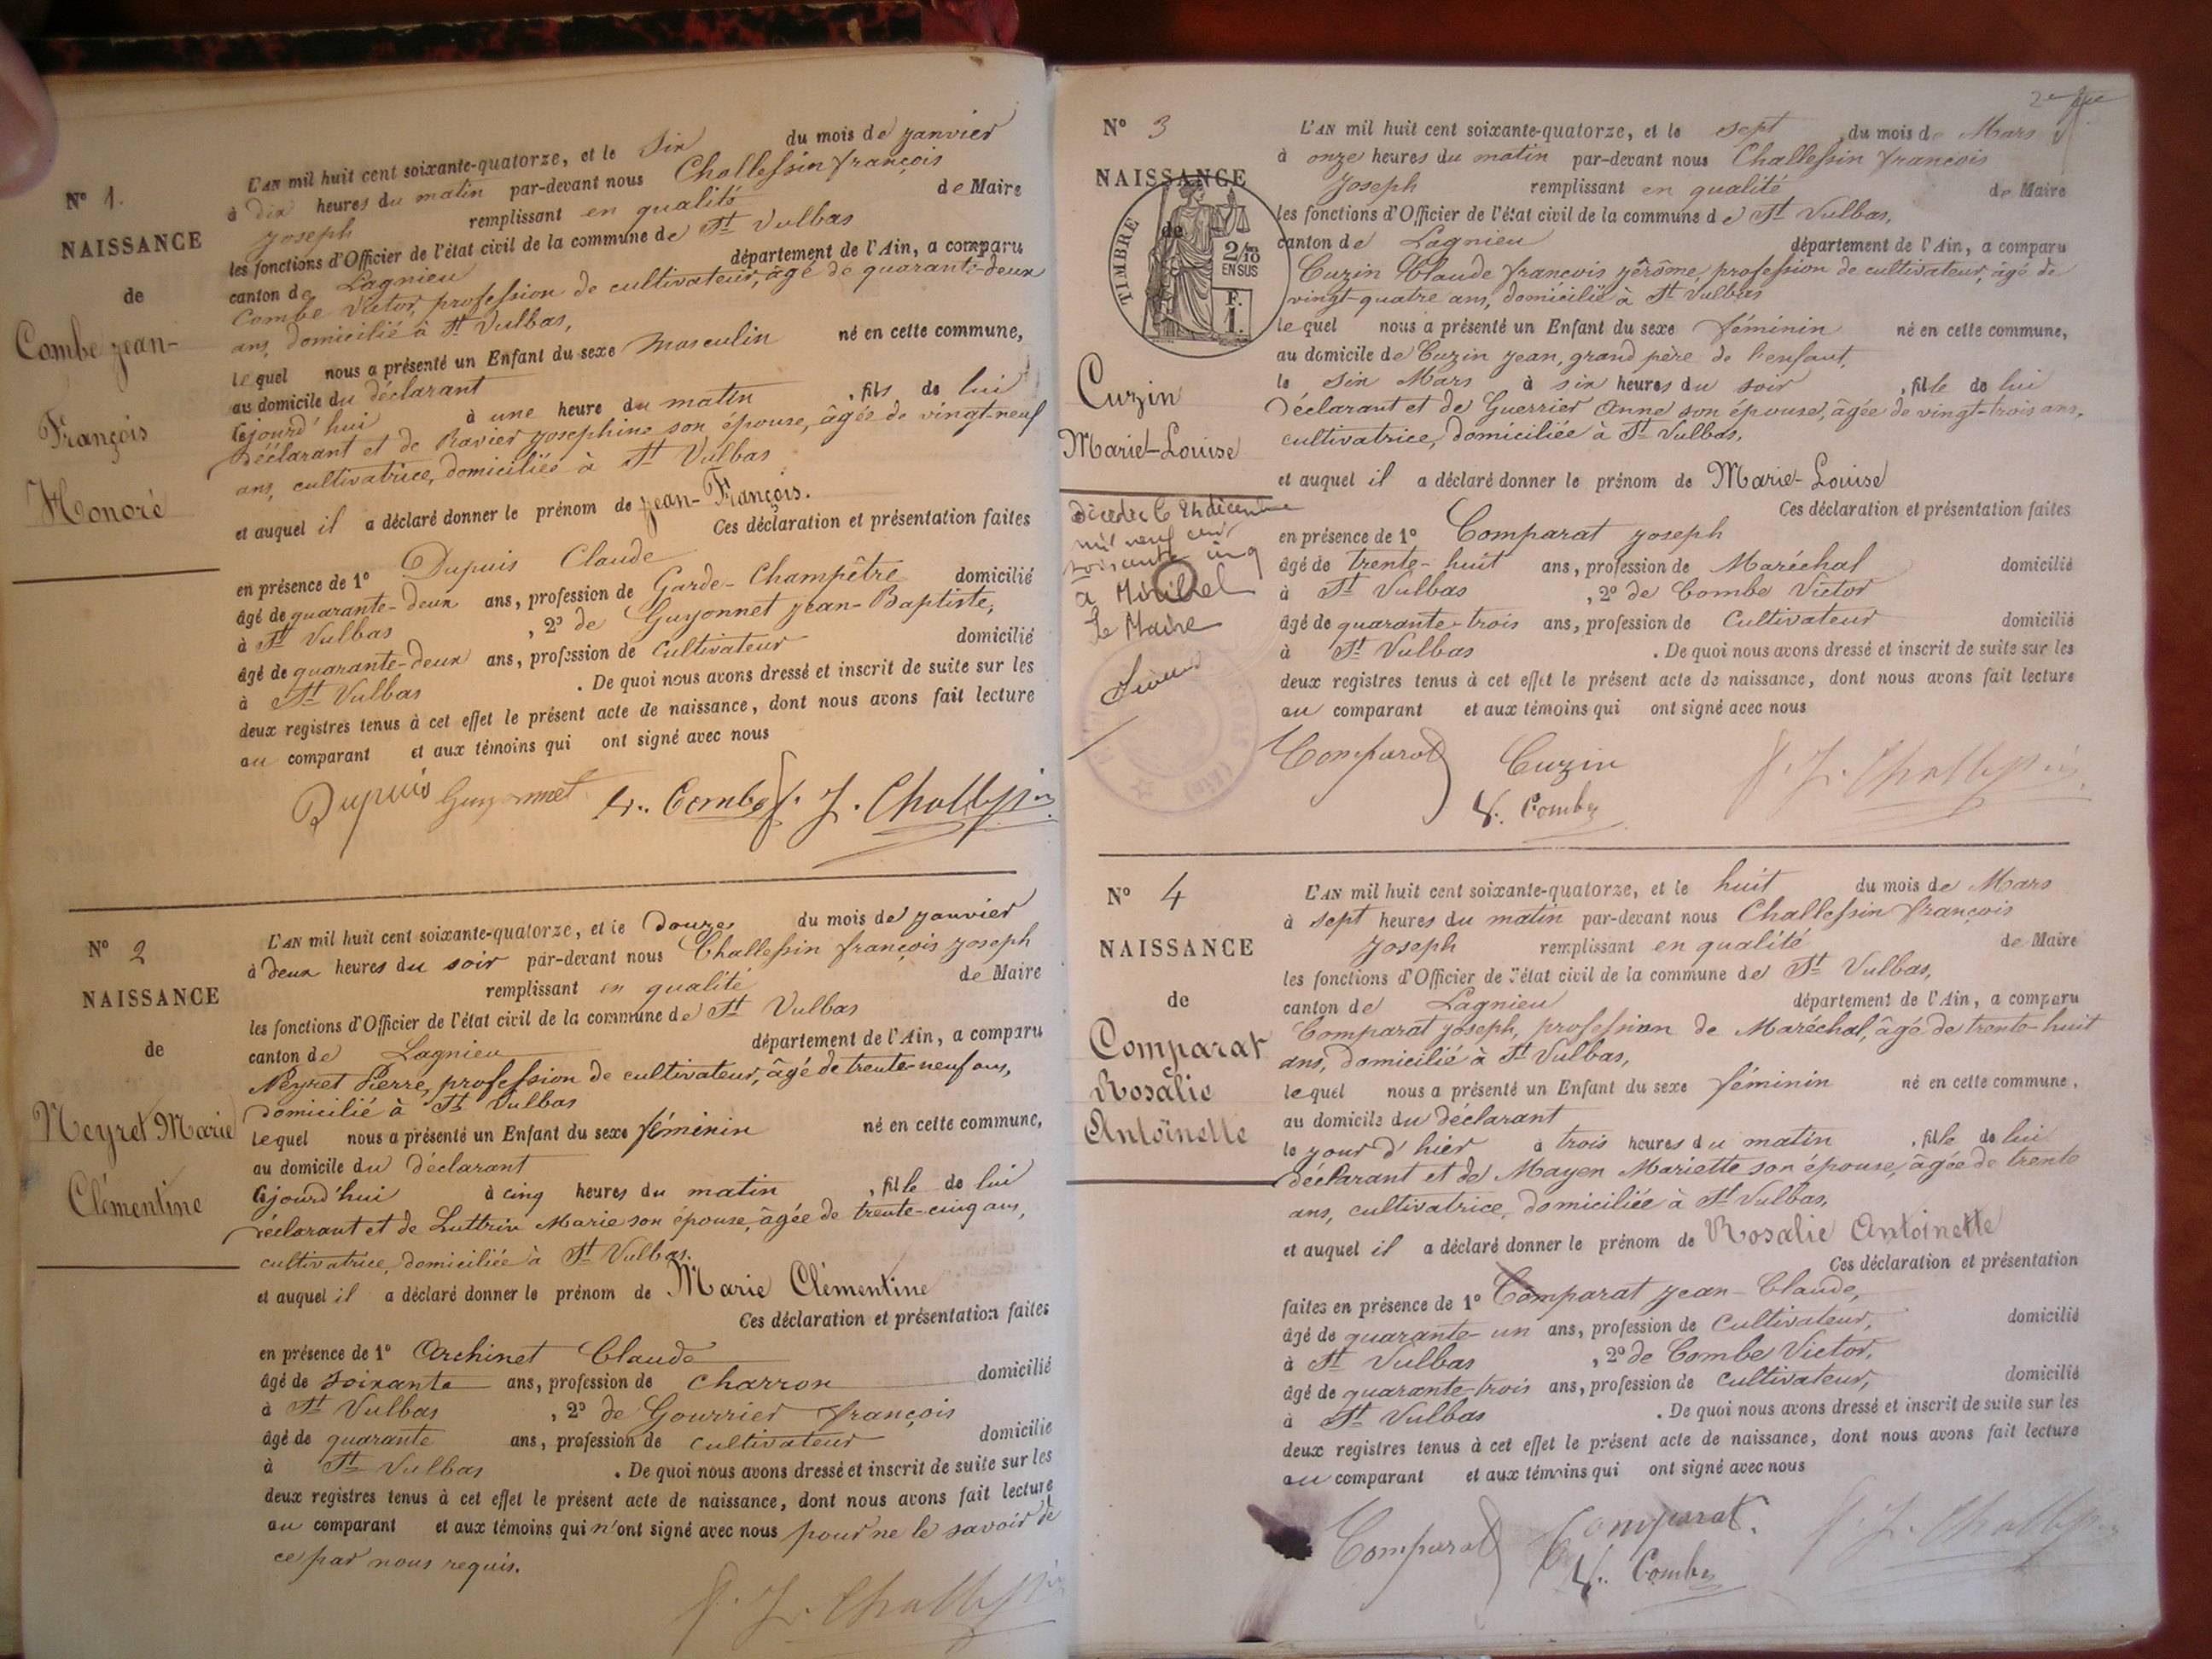 N° 1.
NAISSANCE
de
Combe Jean-
François
Honoré
L'AN mil huit cent soixante-quatorze, et le Six du mois de Janvier
à dix heures du matin par-devant nous Challessin François
Joseph remplissant en qualité de Maire
les fonctions d'Officier de l'état civil de la commune de St Vulbas
canton de Lagnieu département de l'Ain, a comparu
Combe Victor, profession de cultivateur, âgé de quarante-deux
ans, domicilié à St Vulbas,
lequel nous a présenté un Enfant du sexe Masculin né en cette commune,
au domicile du déclarant
cejourd'hui à une heure du matin, fils de lui
déclarant et de Ravier Josephine son épouse, âgée de vingt-neuf
ans, cultivatrice, domiciliée à St Vulbas
et auquel il a déclaré donner le prénom de Jean-François.
Ces déclaration et présentation faites
en présence de 1° Dupuis Claude
âgé de quarante-deux ans, profession de Garde-Champêtre domicilié
à St Vulbas, 2° de Guyonnet Jean-Baptiste,
âgé de quarante-deux ans, profession de Cultivateur domicilié
à St Vulbas. De quoi nous avons dressé et inscrit de suite sur les
deux registres tenus à cet effet le présent acte de naissance, dont nous avons fait lecture
au comparant et aux témoins qui ont signé avec nous
Dupuis Guyonnet V. Combe f. J. Challessin
N° 2
NAISSANCE
de
Neyret Marie
Clémentine
L'AN mil huit cent soixante-quatorze, et le Douze du mois de Janvier
à deux heures du soir par-devant nous Challessin François Joseph
remplissant en qualité de Maire
les fonctions d'Officier de l'état civil de la commune de St Vulbas
canton de Lagnieu département de l'Ain, a comparu
Neyret Pierre, profession de cultivateur, âgé de trente-neuf ans,
domicilié à St Vulbas
lequel nous a présenté un Enfant du sexe féminin né en cette commune,
au domicile du déclarant
cejourd'hui à cinq heures du matin, fille de lui
déclarant et de Luttrin Marie son épouse, âgée de trente-cinq ans,
cultivatrice, domiciliée à St Vulbas.
et auquel il a déclaré donner le prénom de Marie Clémentine
Ces déclaration et présentation faites
en présence de 1° Archinet Claude
âgé de soixante ans, profession de Charron domicilié
à St Vulbas, 2° de Gourrier François
âgé de quarante ans, profession de cultivateur domicilié
à St Vulbas. De quoi nous avons dressé et inscrit de suite sur les
deux registres tenus à cet effet le présent acte de naissance, dont nous avons fait lecture
au comparant et aux témoins qui n'ont signé avec nous pour ne le savoir de
ce par nous requis.
f. J. Challessin
N° 3
NAISSANCE
de
TIMBRE
2/10
EN SUS
F.
1.
Cuzin
Marie-Louise
décédée le 24 décembre
mil neuf cent
soixante cinq
à Miribel
Le Maire
L'AN mil huit cent soixante-quatorze, et le sept du mois de Mars
à onze heures du matin par-devant nous Challessin François
Joseph remplissant en qualité de Maire
les fonctions d'Officier de l'état civil de la commune de St Vulbas,
canton de Lagnieu département de l'Ain, a comparu
Cuzin Claude François Jérôme, profession de cultivateur, âgé de
vingt-quatre ans, domicilié à St Vulbas
lequel nous a présenté un Enfant du sexe féminin né en cette commune,
au domicile de Cuzin Jean, grand père de l'enfant,
le six Mars à six heures du soir, fille de lui
déclarant et de Guerrier Anne son épouse, âgée de vingt-trois ans,
cultivatrice, domiciliée à St Vulbas,
et auquel il a déclaré donner le prénom de Marie-Louise
Ces déclaration et présentation faites
en présence de 1° Comparat Joseph
âgé de trente-huit ans, profession de Maréchal domicilié
à St Vulbas, 2° de Combe Victor
âgé de quarante-trois ans, profession de Cultivateur domicilié
à St Vulbas. De quoi nous avons dressé et inscrit de suite sur les
deux registres tenus à cet effet le présent acte de naissance, dont nous avons fait lecture
au comparant et aux témoins qui ont signé avec nous
Comparat Cuzin f. J. Challessin
V. Combe
N° 4
NAISSANCE
de
Comparat
Rosalie
Antoinette
L'AN mil huit cent soixante-quatorze, et le huit du mois de Mars
à sept heures du matin par-devant nous Challessin François
Joseph remplissant en qualité de Maire
les fonctions d'Officier de l'état civil de la commune de St Vulbas,
canton de Lagnieu département de l'Ain, a comparu
Comparat Joseph, profession de Maréchal, âgé de trente-huit
ans, domicilié à St Vulbas,
lequel nous a présenté un Enfant du sexe féminin né en cette commune,
au domicile du déclarant
le jour d'hier à trois heures du matin, fille de lui
déclarant et de Mayen Mariette son épouse, âgée de trente
ans, cultivatrice, domiciliée à St Vulbas,
et auquel il a déclaré donner le prénom de Rosalie Antoinette
Ces déclaration et présentation
faites en présence de 1° Comparat Jean-Claude,
âgé de quarante-un ans, profession de Cultivateur, domicilié
à St Vulbas, 2° de Combe Victor,
âgé de quarante-trois ans, profession de Cultivateur, domicilié
à St Vulbas. De quoi nous avons dressé et inscrit de suite sur les
deux registres tenus à cet effet le présent acte de naissance, dont nous avons fait lecture
au comparant et aux témoins qui ont signé avec nous
Comparat Comparat. f. J. Challessin
V. Combe